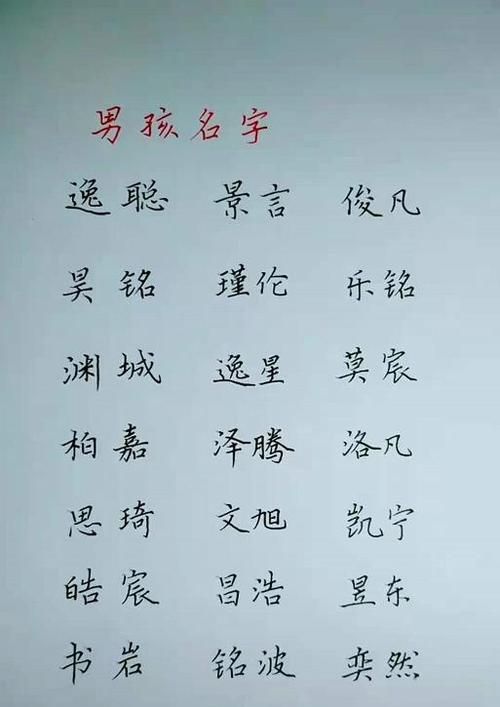 男孩名字
逸聪 景言 俊凡
昊铭 瑾伦 乐铭
渊城 逸星 莫宸
柏嘉 泽腾 洛凡
思琦 文旭 凯宁
皓宸 昌浩 昱东
书岩 铭波 奕然